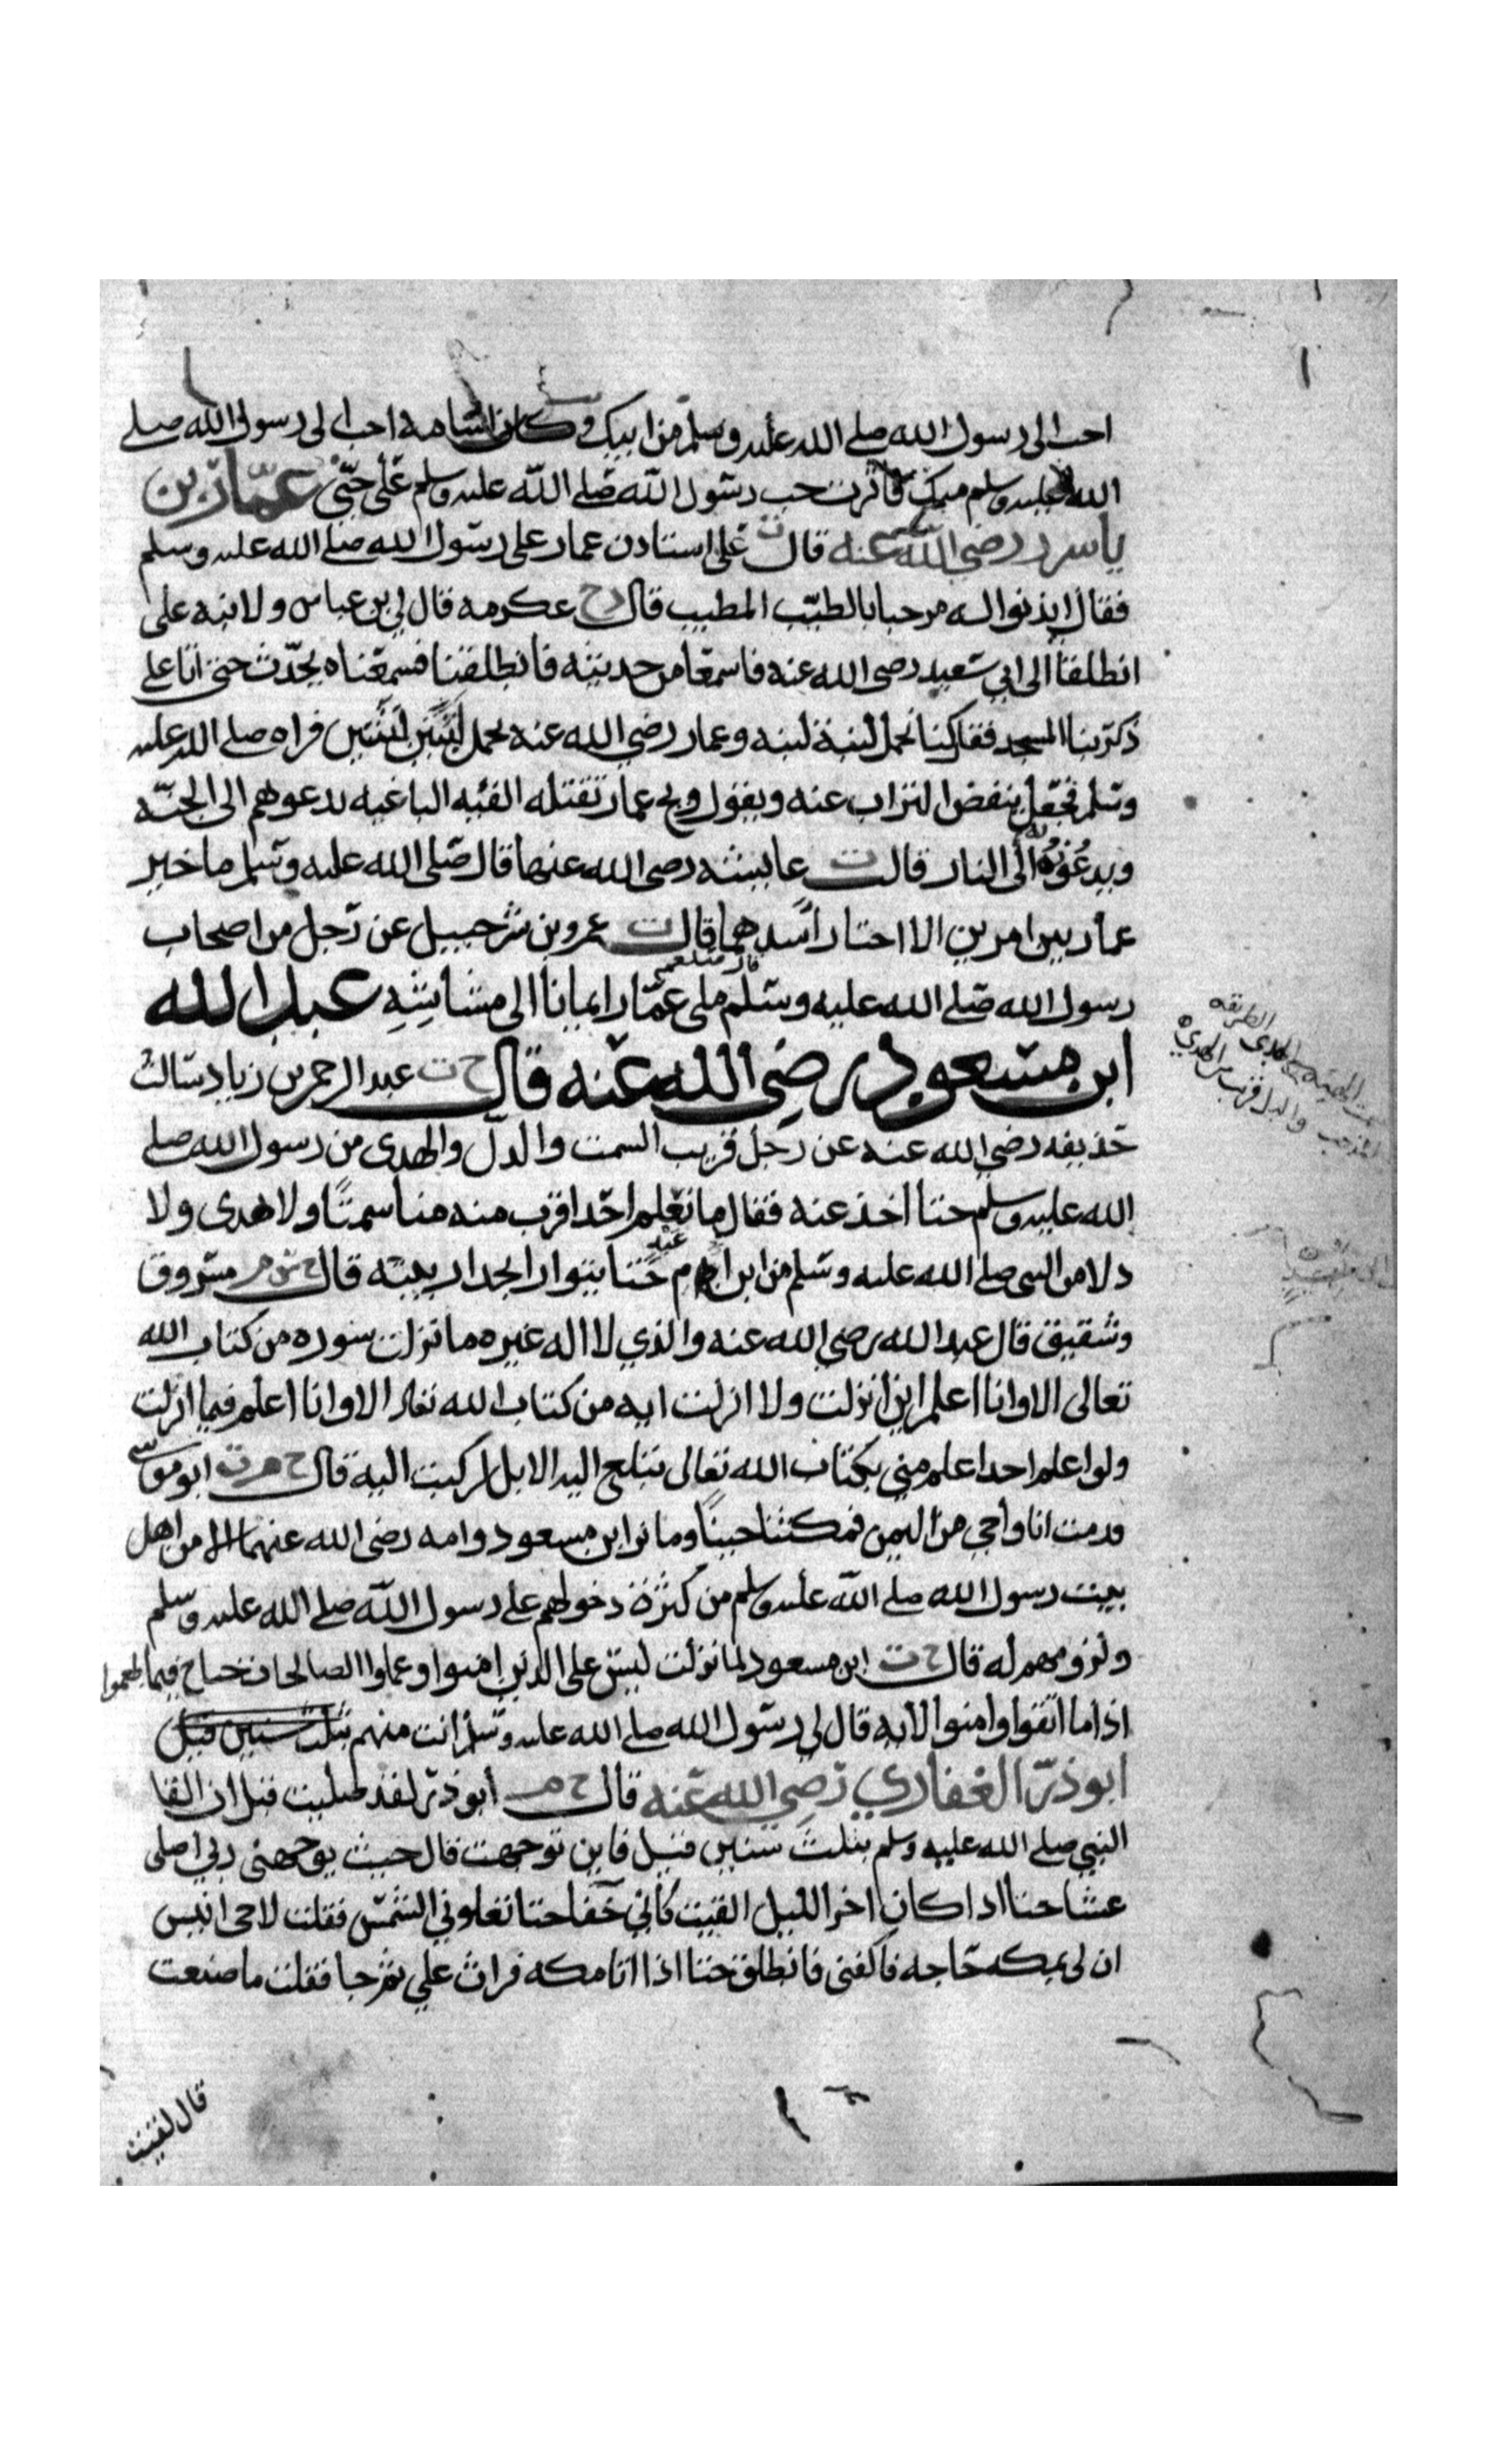 احب الى رسول الله صلى الله عليه وسلم من ابيك وكان اسامة احب الى رسول الله صلى
الله عليه وسلم منك فاثرت حب رسول الله صلى الله عليه وسلم على حبى عمار بن
ياسر رضي الله عنه قال ت على استادن عمار على رسول الله صلى الله عليه وسلم
فقال ايذنوا له مرحبا بالطيب المطيب قال خ عكرمه قال لي بن عباس ولابنه على
انطلقا الى ابي سعيد رضى الله عنه فاسمعا من حديثه فانطلقنا فسمعناه يحدث حتى اتا على
ذكر بنا المسجد فقال كنا نحمل لبنة لبنه وعمار رضي الله عنه يحمل لبنتين لبنتين فراه صلى الله عليه
وسلم فجعل ينفض التراب عنه ويقول ويح عمار تقتله الفئيه الباغيه يدعوهم الى الجنه
ويدعونه الى النار قال ت عايشه رضى الله عنها قال صلى الله عليه وسلم ما خير
عمار بين امرين الا اختار اسدهما قال ت عمرو بن شرحبيل عن رجل من اصحاب
رسول الله صلى الله عليه وسلم قال صلعم ملى عمار ايمانا الى مشاشه عبد الله
ابن مسعود رضي الله عنه قال خ ت عبد الرحمن بن زياد سالت
حذيفه رضي الله عنه عن رجل قريب السمت والدل والهدى من رسول الله صلى
الله عليه وسلم حتا اخذ عنه فقال ما نعلم احدا اقرب منه منا سمتا ولا هدى ولا
دلا من النبى صلى الله عليه وسلم من ابن ام عبد حتا يتوار الجدار ببيته قال خ س م مسروق
وشقيق قال عبد الله رضي الله عنه والذي لا اله غيره ما نزلت سوره من كتاب الله
تعالى الا وانا اعلم اين انزلت ولا انزلت ايه من كتاب الله تعالى الا وانا اعلم فيما انزلت
ولو اعلم احدا اعلم مني بكتاب الله تعالى تبلغ اليه الابل لركبت اليه قال خ م ت ابو موسى
قدمت انا واخي من اليمن فمكثنا حينا وما نرا ابن مسعود وامه رضى الله عنهما الا من اهل
بيت رسول الله صلى الله عليه وسلم من كثرة دخولهم على رسول الله صلى الله عليه وسلم
ولزومهم له قال خ ت ابن مسعود لما نزلت ليس على الذين امنوا وعملوا الصالحات جناح فيما طعموا
اذا ما اتقوا وامنوا الايه قال لي رسول الله صلى الله عليه وسلم انت منهم بثلث سنين قيل
ابو ذر الغفاري رضي الله عنه قال خ م ابو ذر لقد صليت قبل ان القا
النبي صلى الله عليه وسلم بثلث سنين قيل فاين توجهت قال حيث يوجهني ربي اصلى
عشا حتا اذا كان اخر الليل القيت كاني خفا حتا تعلوني الشمس فقلت لاخى انيس
ان لى بمكه حاجه فاكفنى فانطلق حتا اذا اتا مكه فراث علي ثم جا فقلت ما صنعت
قال لقيت